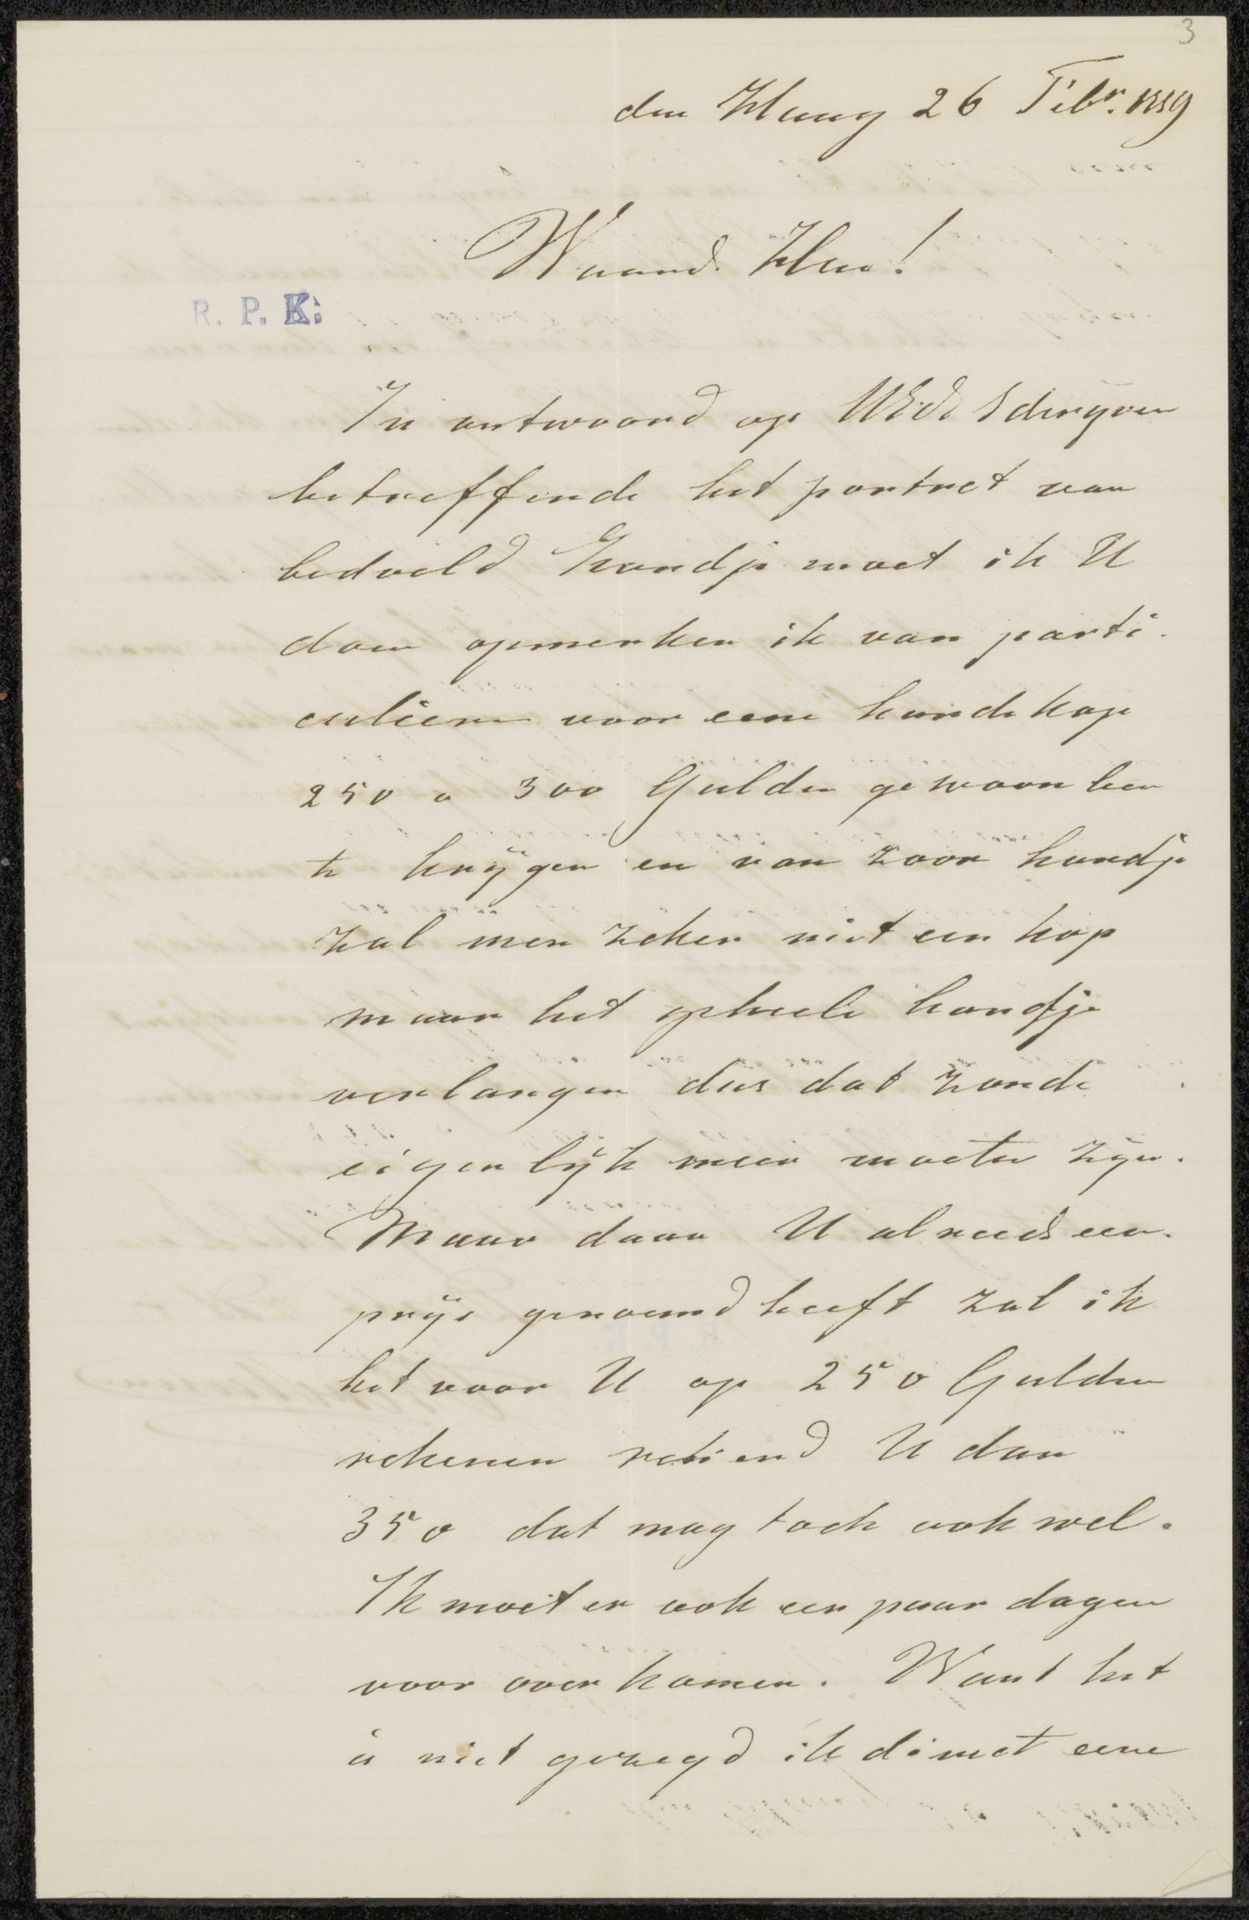 3
den Haag 26 Febr. 1889
Waard. Heer!
R. P. K.
In antwoord op UEds schryven
betreffende het portret van
bedoeld Hondje moet ik U
doen opmerken ik van parti
culieren voor eene hondekop
250 a 300 Gulden gewoon ben
te krijgen en van zoo'n hondje
zal men zeker niet een kop
maar het geheele hondje
verlangen dus dat zoude
eigenlijk meer moeten zijn.
Maar daar U alreeds een
prijs genoemd heeft zal ik
het voor U op 250 Gulden
rekenen U dan
350 dat mag toch ook wel.
Ik moet er ook een paar dagen
voor over komen. Want het
is niet gezegd ik direct eene